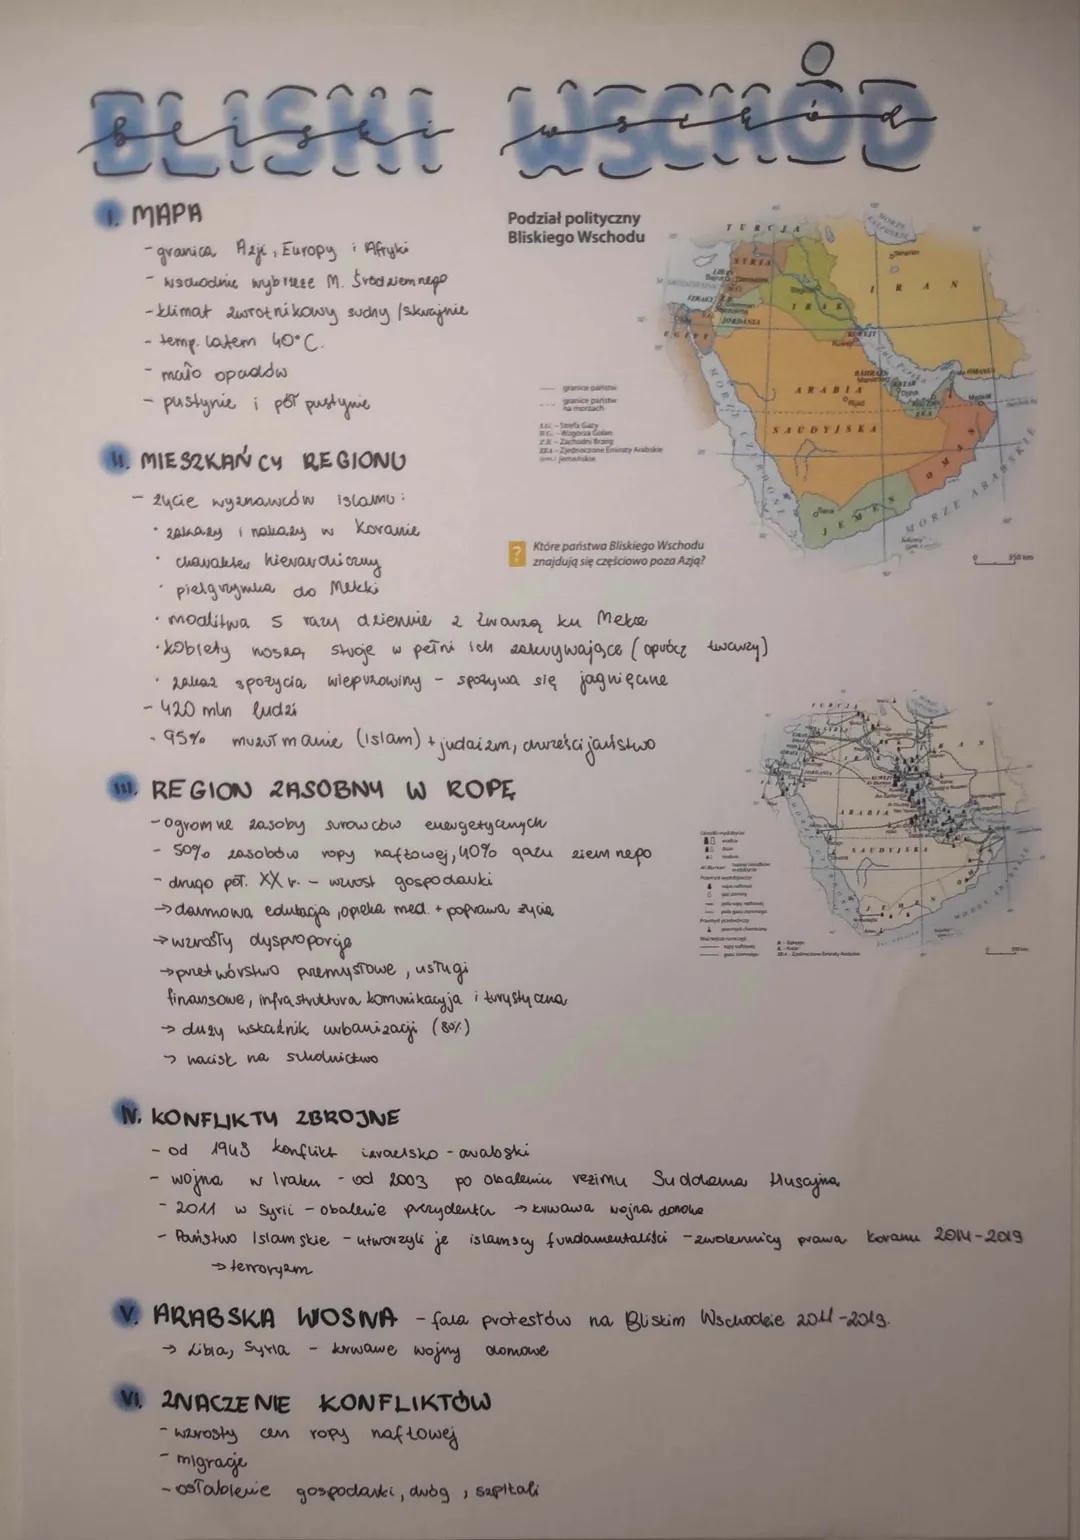 BLISKI WSCHÓD
I. MAPA
- granica Azji, Europy i Afryki
- wschodnie wybrzeże M. Śródziemnego
- klimat zwrotnikowy suchy / skrajnie
- temp. latem 40°C.
- mało opadów
- pustynie i pół pustynie
Podział polityczny
Bliskiego Wschodu
TURCJA
SYRIA
IRAK
IRAN
JORDANIA
EGIPT
ARABIA
SAUDYJSKA
JEMEN
OMAN
MORZE CZERWONE
MORZE ARABSKIE
granice państw
granice państw
na morzach
S.G. - Strefa Gazy
W.G. - Wzgórza Golan
Z.B. - Zachodni Brzeg
ZEA - Zjednoczone Emiraty Arabskie
(jem.) jemeńskie
? Które państwa Bliskiego Wschodu
znajdują się częściowo poza Azją?
II. MIESZKAŃCY REGIONU
- życie wyznawców islamu:
· zakazy i nakazy w Koranie
· charakter hierarchiczny
· pielgrzymka do Mekki
· modlitwa 5 razy dziennie z twarzą ku Mekce
· kobiety noszą stroje w pełni ich zakrywające (oprócz twarzy)
· zakaz spożycia wieprzowiny - spożywa się jagnięcinę
- 420 mln ludzi
- 95% muzułmanie (islam) + judaizm, chrześcijaństwo
III. REGION ZASOBNY W ROPĘ
- ogromne zasoby surowców energetycznych
- 50% zasobów ropy naftowej, 40% gazu ziemnego
- drugo poł. XX w. - wzrost gospodarki
→ darmowa edukacja, opieka med. + poprawa życia
→ wzrosły dysproporcje
→ przetwórstwo przemysłowe, usługi
finansowe, infrastruktura komunikacyja i turystyczna
→ duży wskaźnik urbanizacji (80%)
→ nacisk na szkolnictwo
TURCJA
ARABIA
SAUDYJSKA
JEMEN
ZEA - Zjednoczone Emiraty Arabskie
IV. KONFLIKTY ZBROJNE
- od 1948 konflikt izraelsko - arabski
- wojna w Iraku - od 2003 po obaleniu reżimu Suddama Husajna
- 2011 w Syrii - obalenie prezydenta → krwawa wojna domowa
- Państwo Islamskie - utworzyli je islamscy fundamentaliści - zwolennicy prawa Koranu 2014-2019
→ terroryzm
V. ARABSKA WOSNA - fala protestów na Bliskim Wschodzie 2011-2019.
→ Libia, Syria - krwawe wojny domowe
VI. ZNACZENIE KONFLIKTÓW
- wzrosty cen ropy naftowej
- migracje
- osłabienie gospodarki, dróg, szpitali